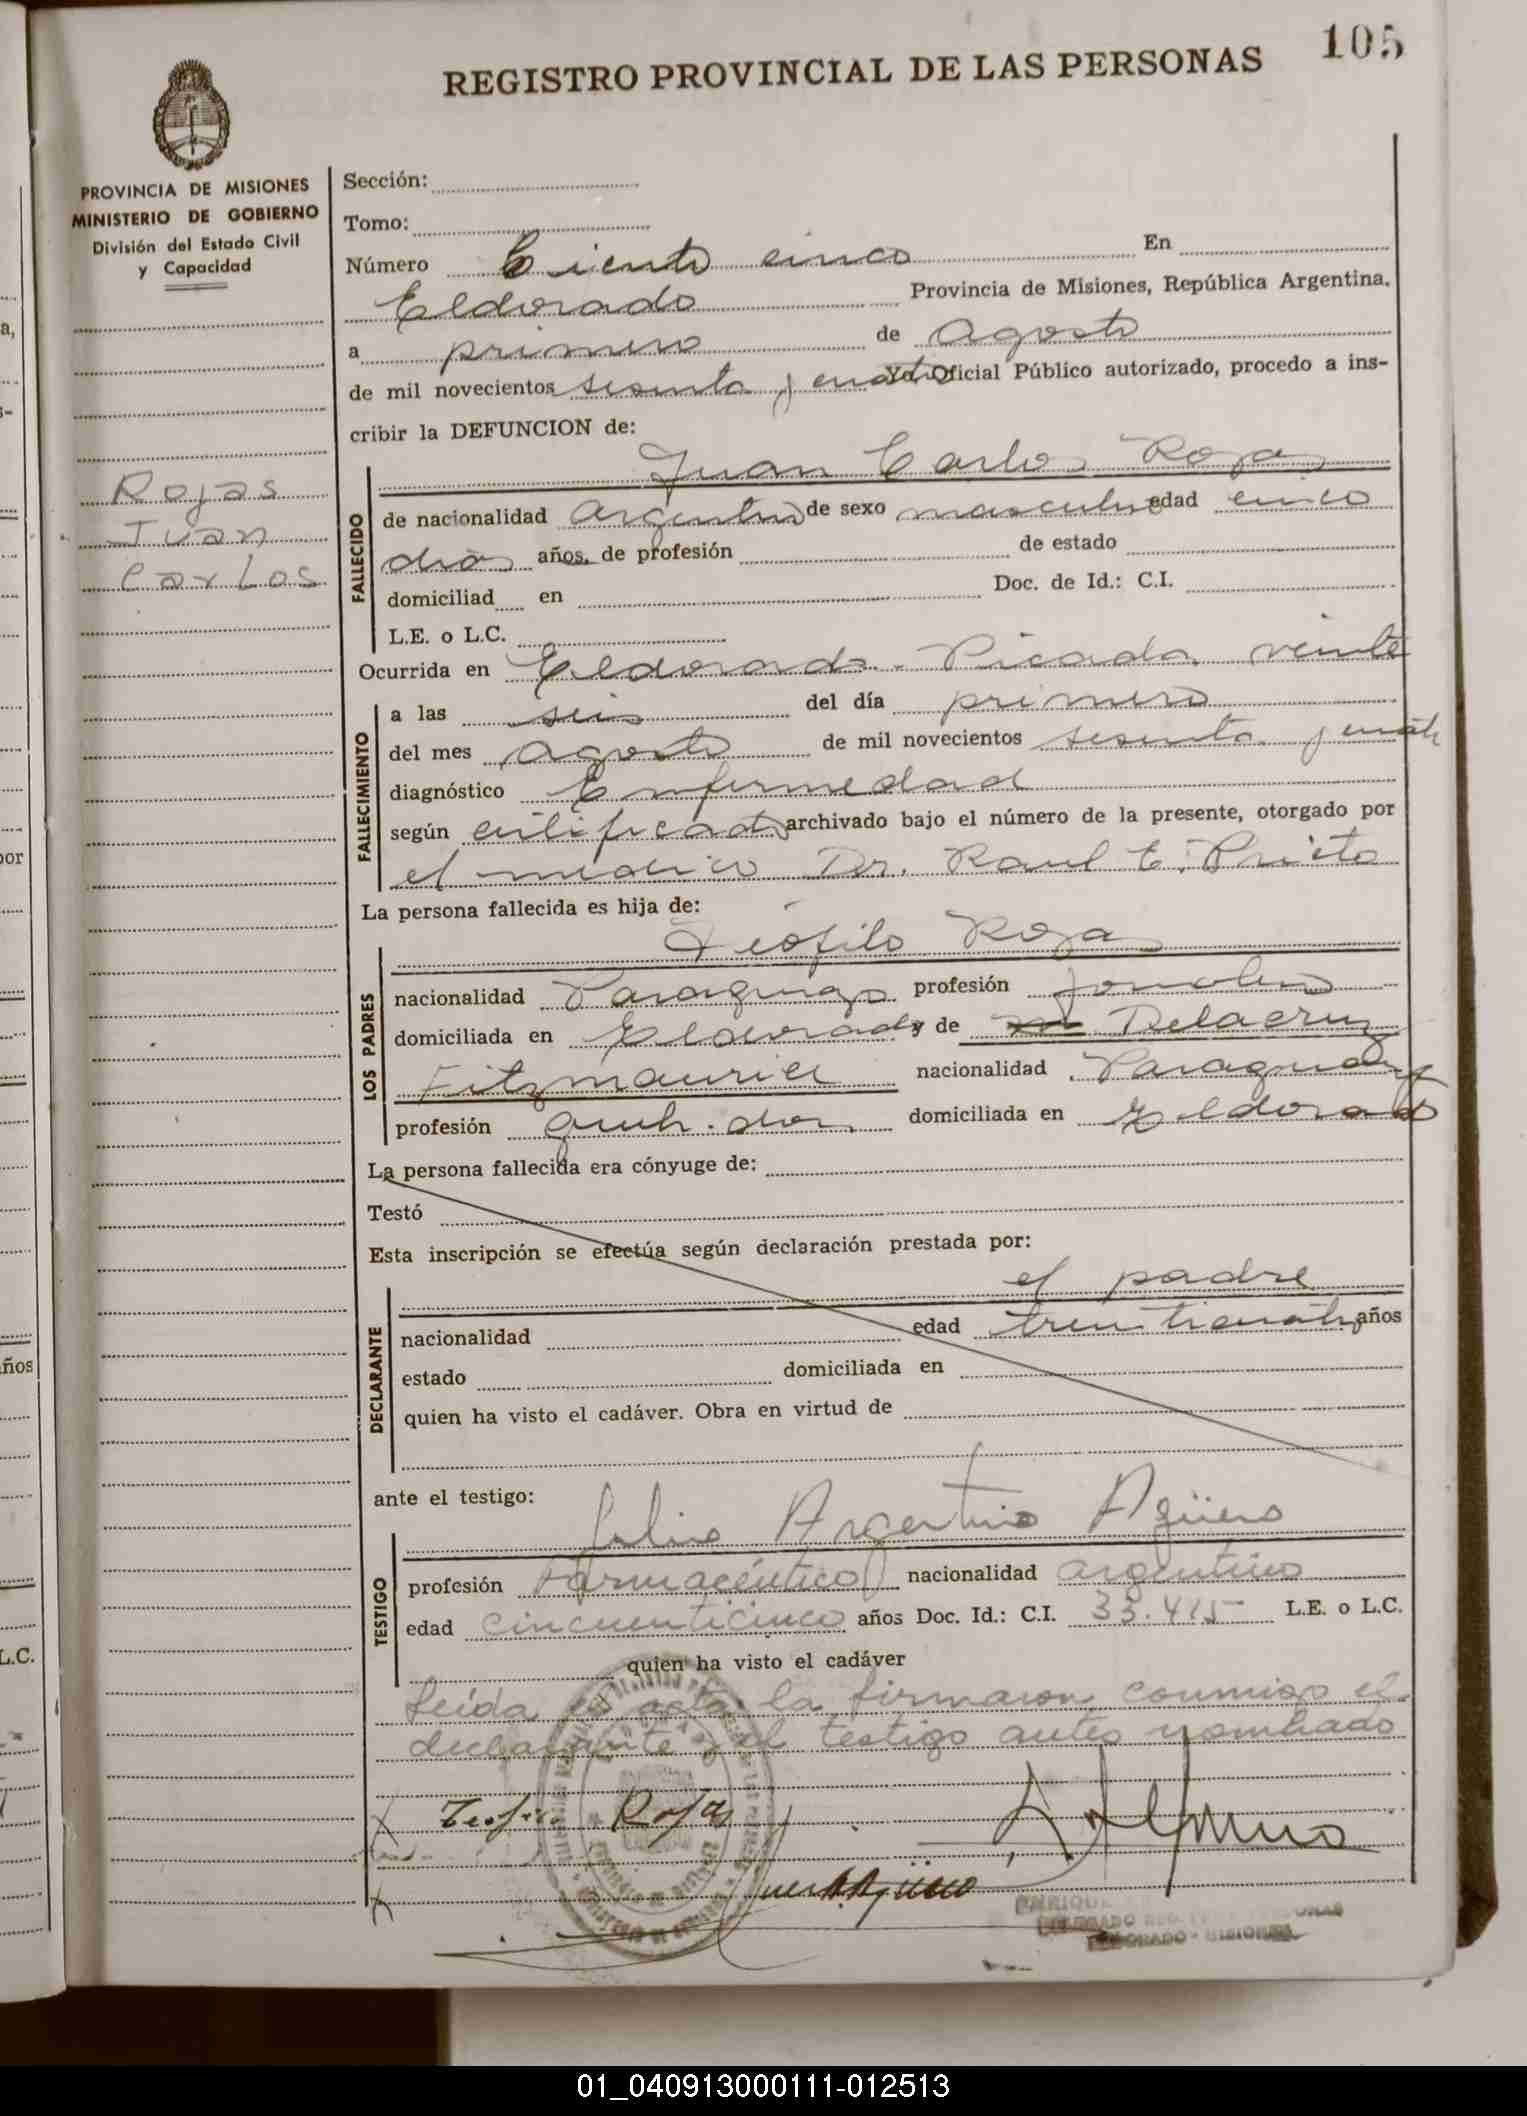 105
REGISTRO PROVINCIAL DE LAS PERSONAS
PROVINCIA DE MISIONES
MINISTERIO DE GOBIERNO
División del Estado Civil
y Capacidad
Rojas
Juan
Carlos
Sección:
Tomo:
Número Ciento cinco En
Eldorado Provincia de Misiones, República Argentina,
a primero de agosto
de mil novecientos sesenta y cuatro Yo Oficial Público autorizado, procedo a ins-
cribir la DEFUNCION de:
FALLECIDO
Juan Carlos Rojas
de nacionalidad argentino de sexo masculino edad cinco
dias años, de profesión de estado
domiciliad en Doc. de Id.: C.I.
L.E. o L.C.
Ocurrida en Eldorado. Picada veinte
FALLECIMIENTO
a las seis del día primero
del mes agosto de mil novecientos sesenta y cuatro
diagnóstico Enfermedad
según certificado archivado bajo el número de la presente, otorgado por
el medico Dr. Raul E. Prieto
La persona fallecida es hija de:
LOS PADRES
Teófilo Rojas
nacionalidad Paraguayo profesión jornalero
domiciliada en Eldorado y de Delacruz
Fitzmaurice nacionalidad Paraguay
profesión domiciliada en Eldorado
La persona fallecida era cónyuge de:
Testó
Esta inscripción se efectúa según declaración prestada por:
DECLARANTE
el padre
nacionalidad edad treinticuatro años
estado domiciliada en
quien ha visto el cadáver. Obra en virtud de
ante el testigo:
TESTIGO
Julio Argentino Agüero
profesión Farmacéutico nacionalidad argentino
edad cincuenticinco años Doc. Id.: C.I. 33.415 L.E. o L.C.
quien ha visto el cadáver
Leída el acta la firmaron conmigo el
declarante y el testigo antes nombrado
Teofilo Rojas
Agüero
ENRIQUE
ELDORADO - MISIONES
01_040913000111-012513